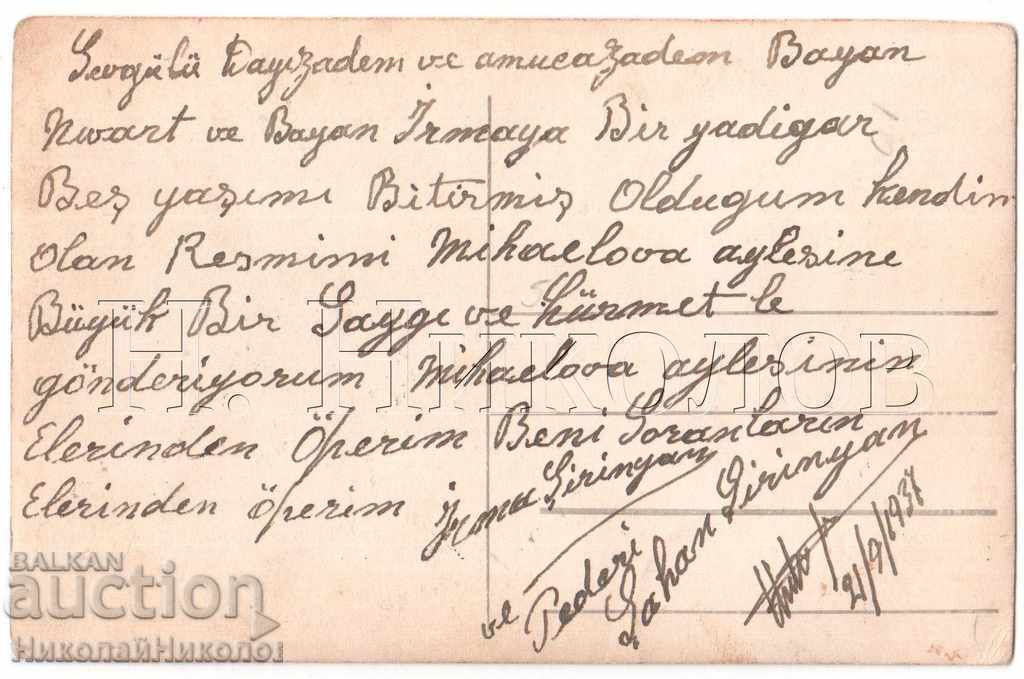 Sevgülü Dayızadem ve amucazadem Bayan
Nwart ve Bayan İrmaya Bir yadigar
Beş yaşımı Bitirmiş Oldugum kendim
Olan Resmimi Mihaelova aylesine
Büyük Bir Saygı ve hürmet le
gönderiyorum Mihaelova aylesinin
Elerinden Öperim Beni Soranların
Elerinden öperim İrma Şirinyan
ve Pederi
Şirinyan
21/9/1937
Н. НИКОЛОВ
BALKAN
auction
НиколайНиколов